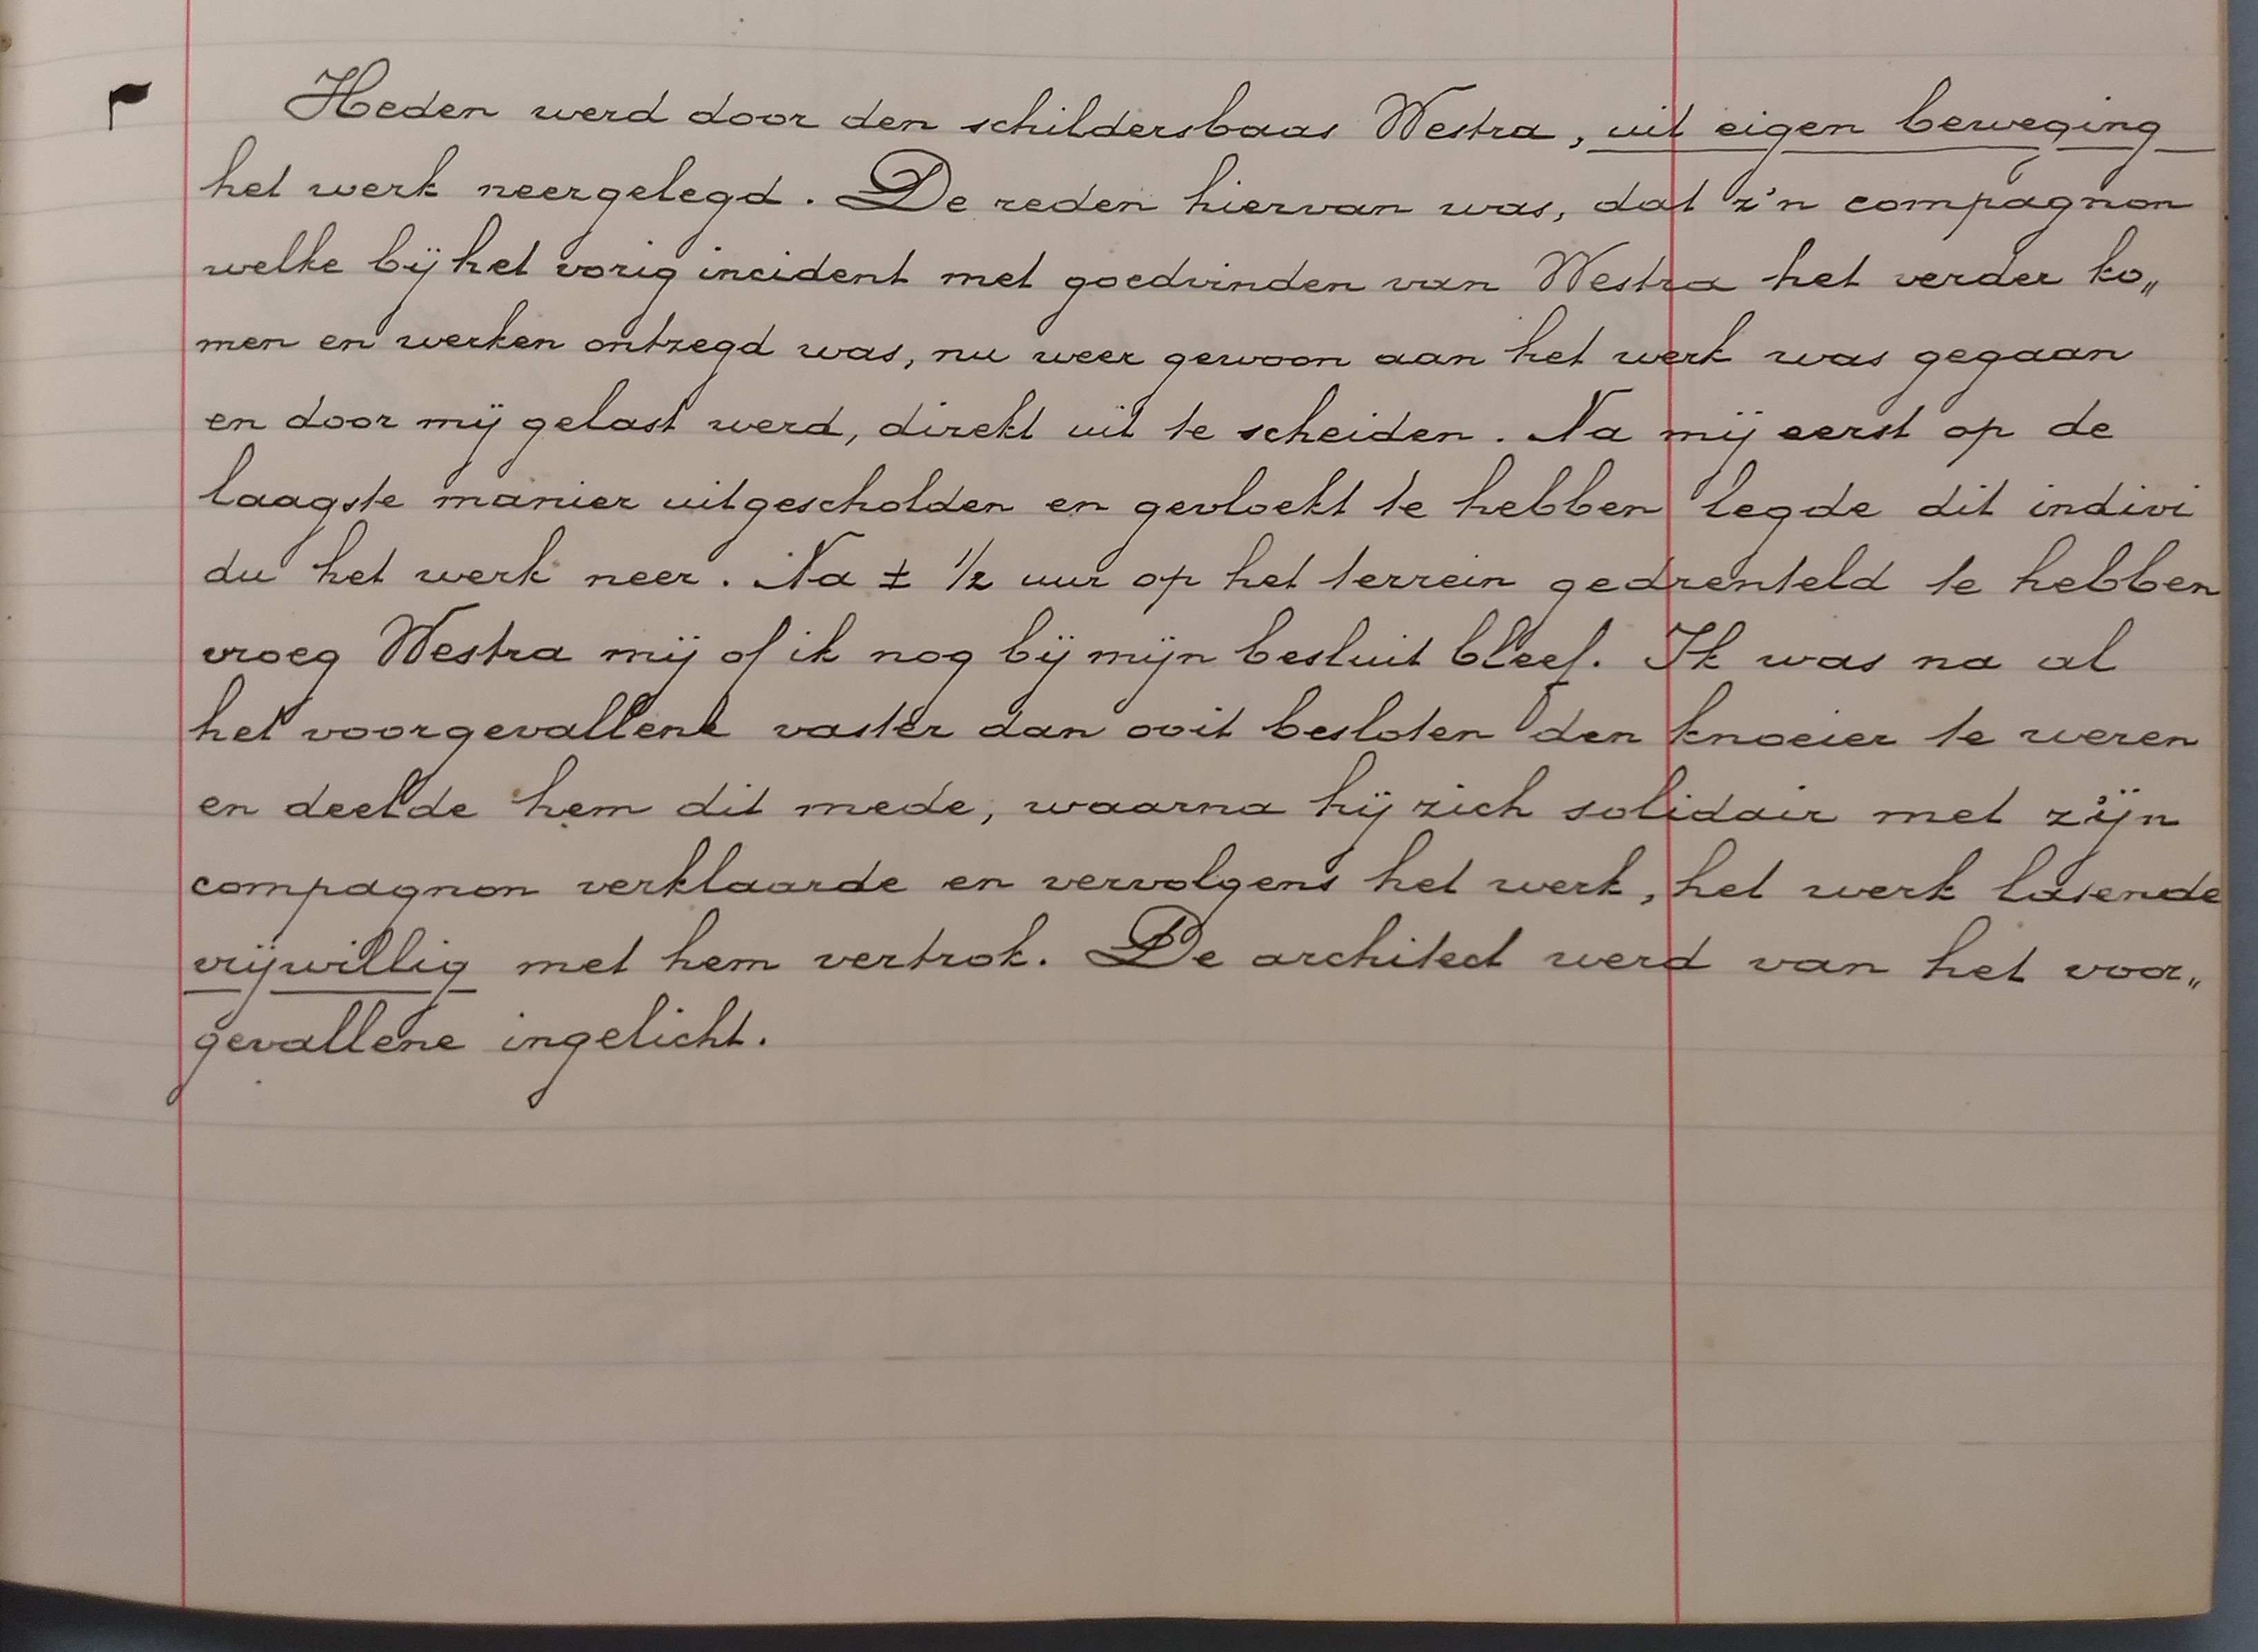 Heden werd door den schildersbaas Westra, uit eigen beweging
het werk neergelegd. De reden hiervan was, dat z'n compagnon
welke bij het vorig incident met goedvinden van Westra het verder ko„
men en werken ontzegd was, nu weer gewoon aan het werk was gegaan
en door mij gelast werd, direkt uit te scheiden. Na mij eerst op de
laagste manier uitgescholden en gevloekt te hebben legde dit indivi
du het werk neer. Na ± 1/2 uur op het terrein gedrenteld te hebben
vroeg Westra mij of ik nog bij mijn besluit bleef. Ik was na al
het voorgevallene vaster dan ooit besloten den knoeier te weren
en deelde hem dit mede, waarna hij zich solidair met zijn
compagnon verklaarde en vervolgens het werk, het werk latende
vrijwillig met hem vertrok. De architect werd van het voor„
gevallene ingelicht.